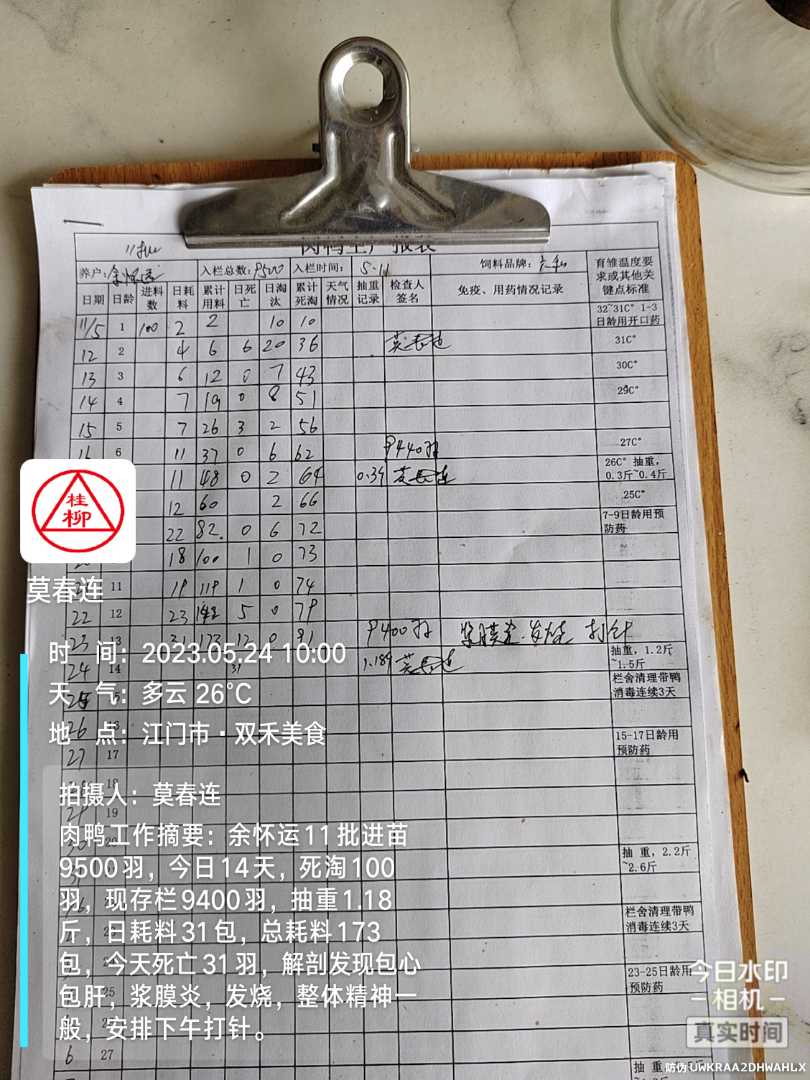 11批
肉鸭生产报表
养户:余怀运 入栏总数:9500 入栏时间: 5.11 饲料品牌: 六和 育雏温度要求或其他关键点标准
日期 日龄 进料数 日耗料 累计用料 日死亡 日淘汰 累计死淘 天气情况 抽重记录 检查人签名 免疫、用药情况记录
11/5 1 100 2 2 10 10 32~31C° 1-3日龄用开口药
12 2 4 6 6 20 36 莫春连 31C°
13 3 6 12 0 7 43 30C°
14 4 7 19 0 8 51 29C°
15 5 7 26 3 2 56
16 6 11 37 0 6 62 9440羽 27C°
11 48 0 2 64 0.39 莫春连 26C° 抽重,0.3斤~0.4斤
12 60 2 66 25C°
22 82 0 6 72 7-9日龄用预防药
18 100 1 0 73
11 19 119 1 0 74
22 12 23 142 5 0 79
23 13 31 173 12 0 91 9400羽 浆膜炎.发烧 打针
24 14 31 1.18斤 莫春连 抽重, 1.2斤~1.5斤
25 栏舍清理带鸭消毒连续3天
26
27 17 15-17日龄用预防药
18
19
抽 重, 2.2斤~2.6斤
栏舍清理带鸭消毒连续3天
25 23-25日龄用预防药
6 27
抽 重
桂柳
莫春连
时 间: 2023.05.24 10:00
天 气: 多云 26°C
地 点: 江门市·双禾美食
拍摄人: 莫春连
肉鸭工作摘要: 余怀运11批进苗
9500羽, 今日14天, 死淘100
羽, 现存栏9400羽, 抽重1.18
斤, 日耗料31包, 总耗料173
包, 今天死亡31羽, 解剖发现包心
包肝, 浆膜炎, 发烧, 整体精神一
般, 安排下午打针。
今日水印
相机
真实时间
防伪 UWKRAA2DHWAHLX